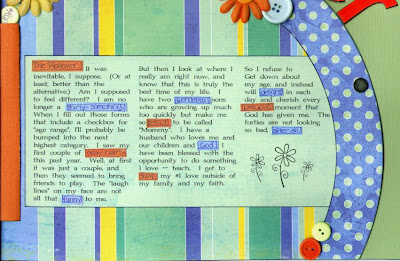 The Rollover. It was
inevitable, I suppose. (Or at
least, better than the
alternative.) Am I supposed
to feel different? I am no
longer a thirty-something.
When I fill out those forms
that include a checkbox for
"age range", I'll probably be
bumped into the next
highest category. I saw my
first couple of gray hairs
this past year. Well, at first
it was just a couple, and
then they seemed to bring
friends to play. The "laugh
lines" on my face are not
all that funny to me.
But then I look at where I
really am right now, and
know that this is truly the
best time of my life. I
have two wonderful sons
who are growing up much
too quickly but make me
proud to be called
"Mommy". I have a
husband who loves me and
our children and God. I
have been blessed with the
opportunity to do something
I love -- teach. I get to
my #1 love outside of
my family and my faith.
So I refuse to
Get down about
my age, and instead
will delight in each
day and cherish every
moment that
God has given me. The
forties are not looking
so bad, after all.